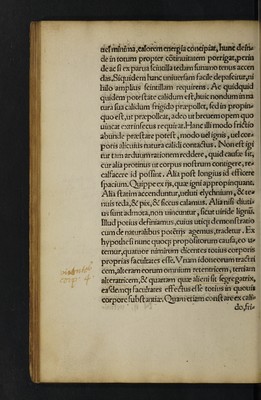 uel minima, calorem energia concipiat, hunc dein-
de in totum propter cõtinuitatem porrigat, perin
de ac si ex parua scintilla tedam summo tenus accen
das. Siquidem hanc uniuersam facile depascitur, ni
hilo amplius scintillam requirens. Ac quidquid
quidem potestate calidum est, huic nondum in na
tura sua calidum frigido præpollet, sed in propin-
quo est, ut præpolleat, adeo ut breuem opem quo
uincat extrinsecus requirat. Hanc illi modo frictio
abunde præstare potest, modo uel ignis, uel cor-
poris alicuius natura calidi contactus. Non est igi
tur tam arduum rationem reddere, quid causæ sit,
cur alia protinus ut corpus nostrum contigere, re-
calfacere id possint. Alia post longius id efficere
spacium. Quippe ex ijs, quæ igni appropinquant.
Alia statim accenduntur, ueluti elychnium, & te-
nuis teda, & pix, & siccus calamus. Alia nisi diuti-
us sint admota, non uincuntur, sicut uiride lignũ.
Illud potius definiamus, cuius utiq; demonstratio
cum de naturalibus potẽtijs agemus, tradetur. Ex
hypothesi nunc quoq; propositorum causa, eo u-
temur, quatuor nimirum dicentes totius corporis
proprias facultates esse. Vnam idoneorum tractri
cem, alteram eorum omnium retentricem, tertiam
alteratricem, & quartam quæ alieni sit segregatrix,
easdemq; facultates effectus esse totius in quouis
corpore substantiæ. Quam etiam constare ex cali-
do, fri-